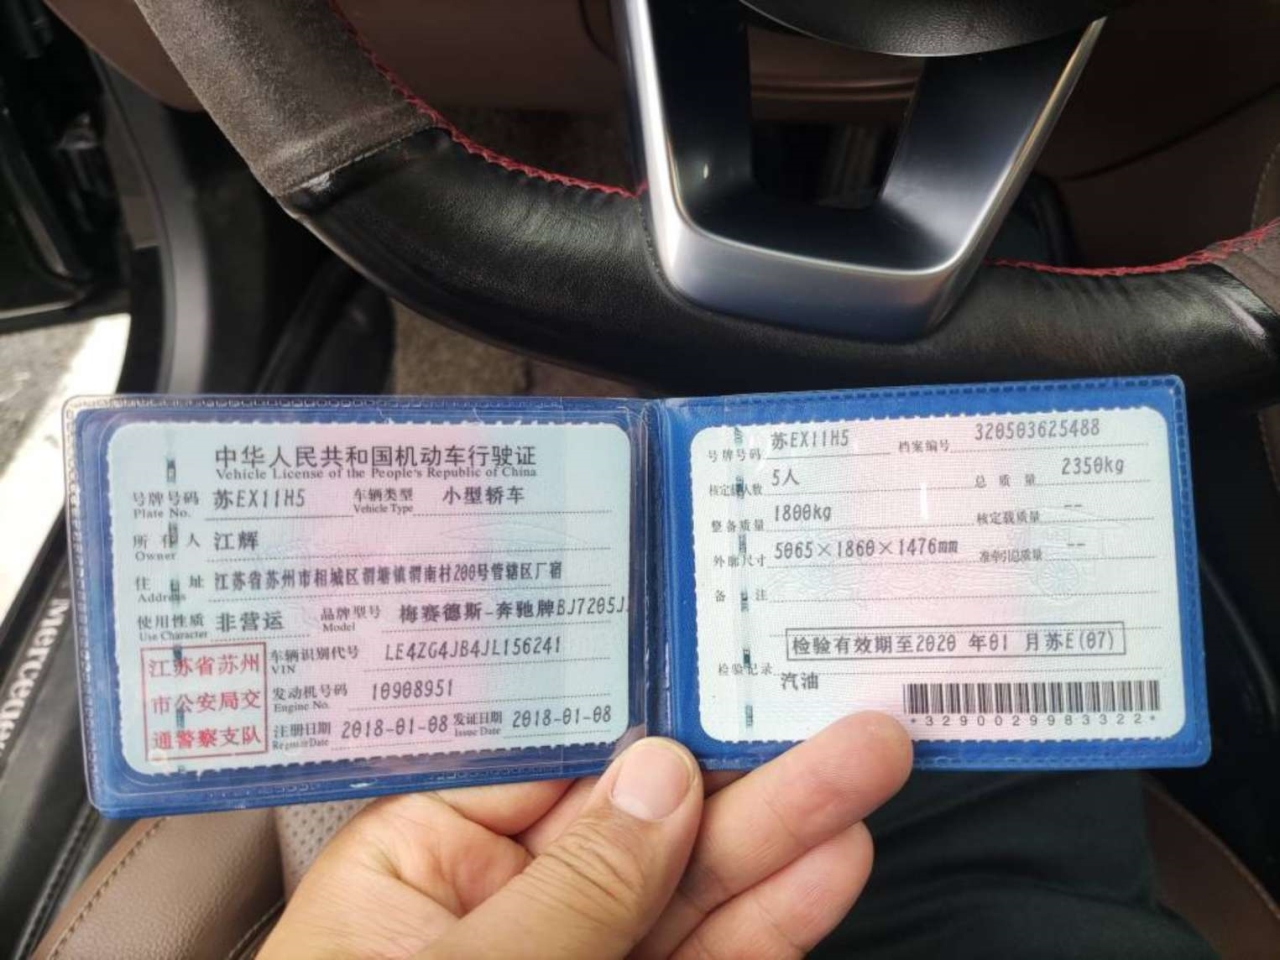 中华人民共和国机动车行驶证
Vehicle License of the People's Republic of China
号牌号码 苏EX11H5 车辆类型 小型轿车
Plate No. Vehicle Type
所有人 江辉
Owner
住址 江苏省苏州市相城区渭塘镇渭南村200号管辖区厂宿
Address
使用性质 非营运 品牌型号 梅赛德斯-奔驰牌BJ7205J
Use Character Model
江苏省苏州
市公安局交
通警察支队
车辆识别代号 LE4ZG4JB4JL156241
VIN
发动机号码 10908951
Engine No.
注册日期 2018-01-08 发证日期 2018-01-08
Register Date Issue Date
号牌号码 苏EX11H5 档案编号 320503625488
核定载人数 5人 总质量 2350kg
整备质量 1800kg 核定载质量 --
外廓尺寸 5065×1860×1476 准牵引总质量 --
备注
检验有效期至2020 年01 月苏E(07)
检验记录
汽油
*3290029983322*